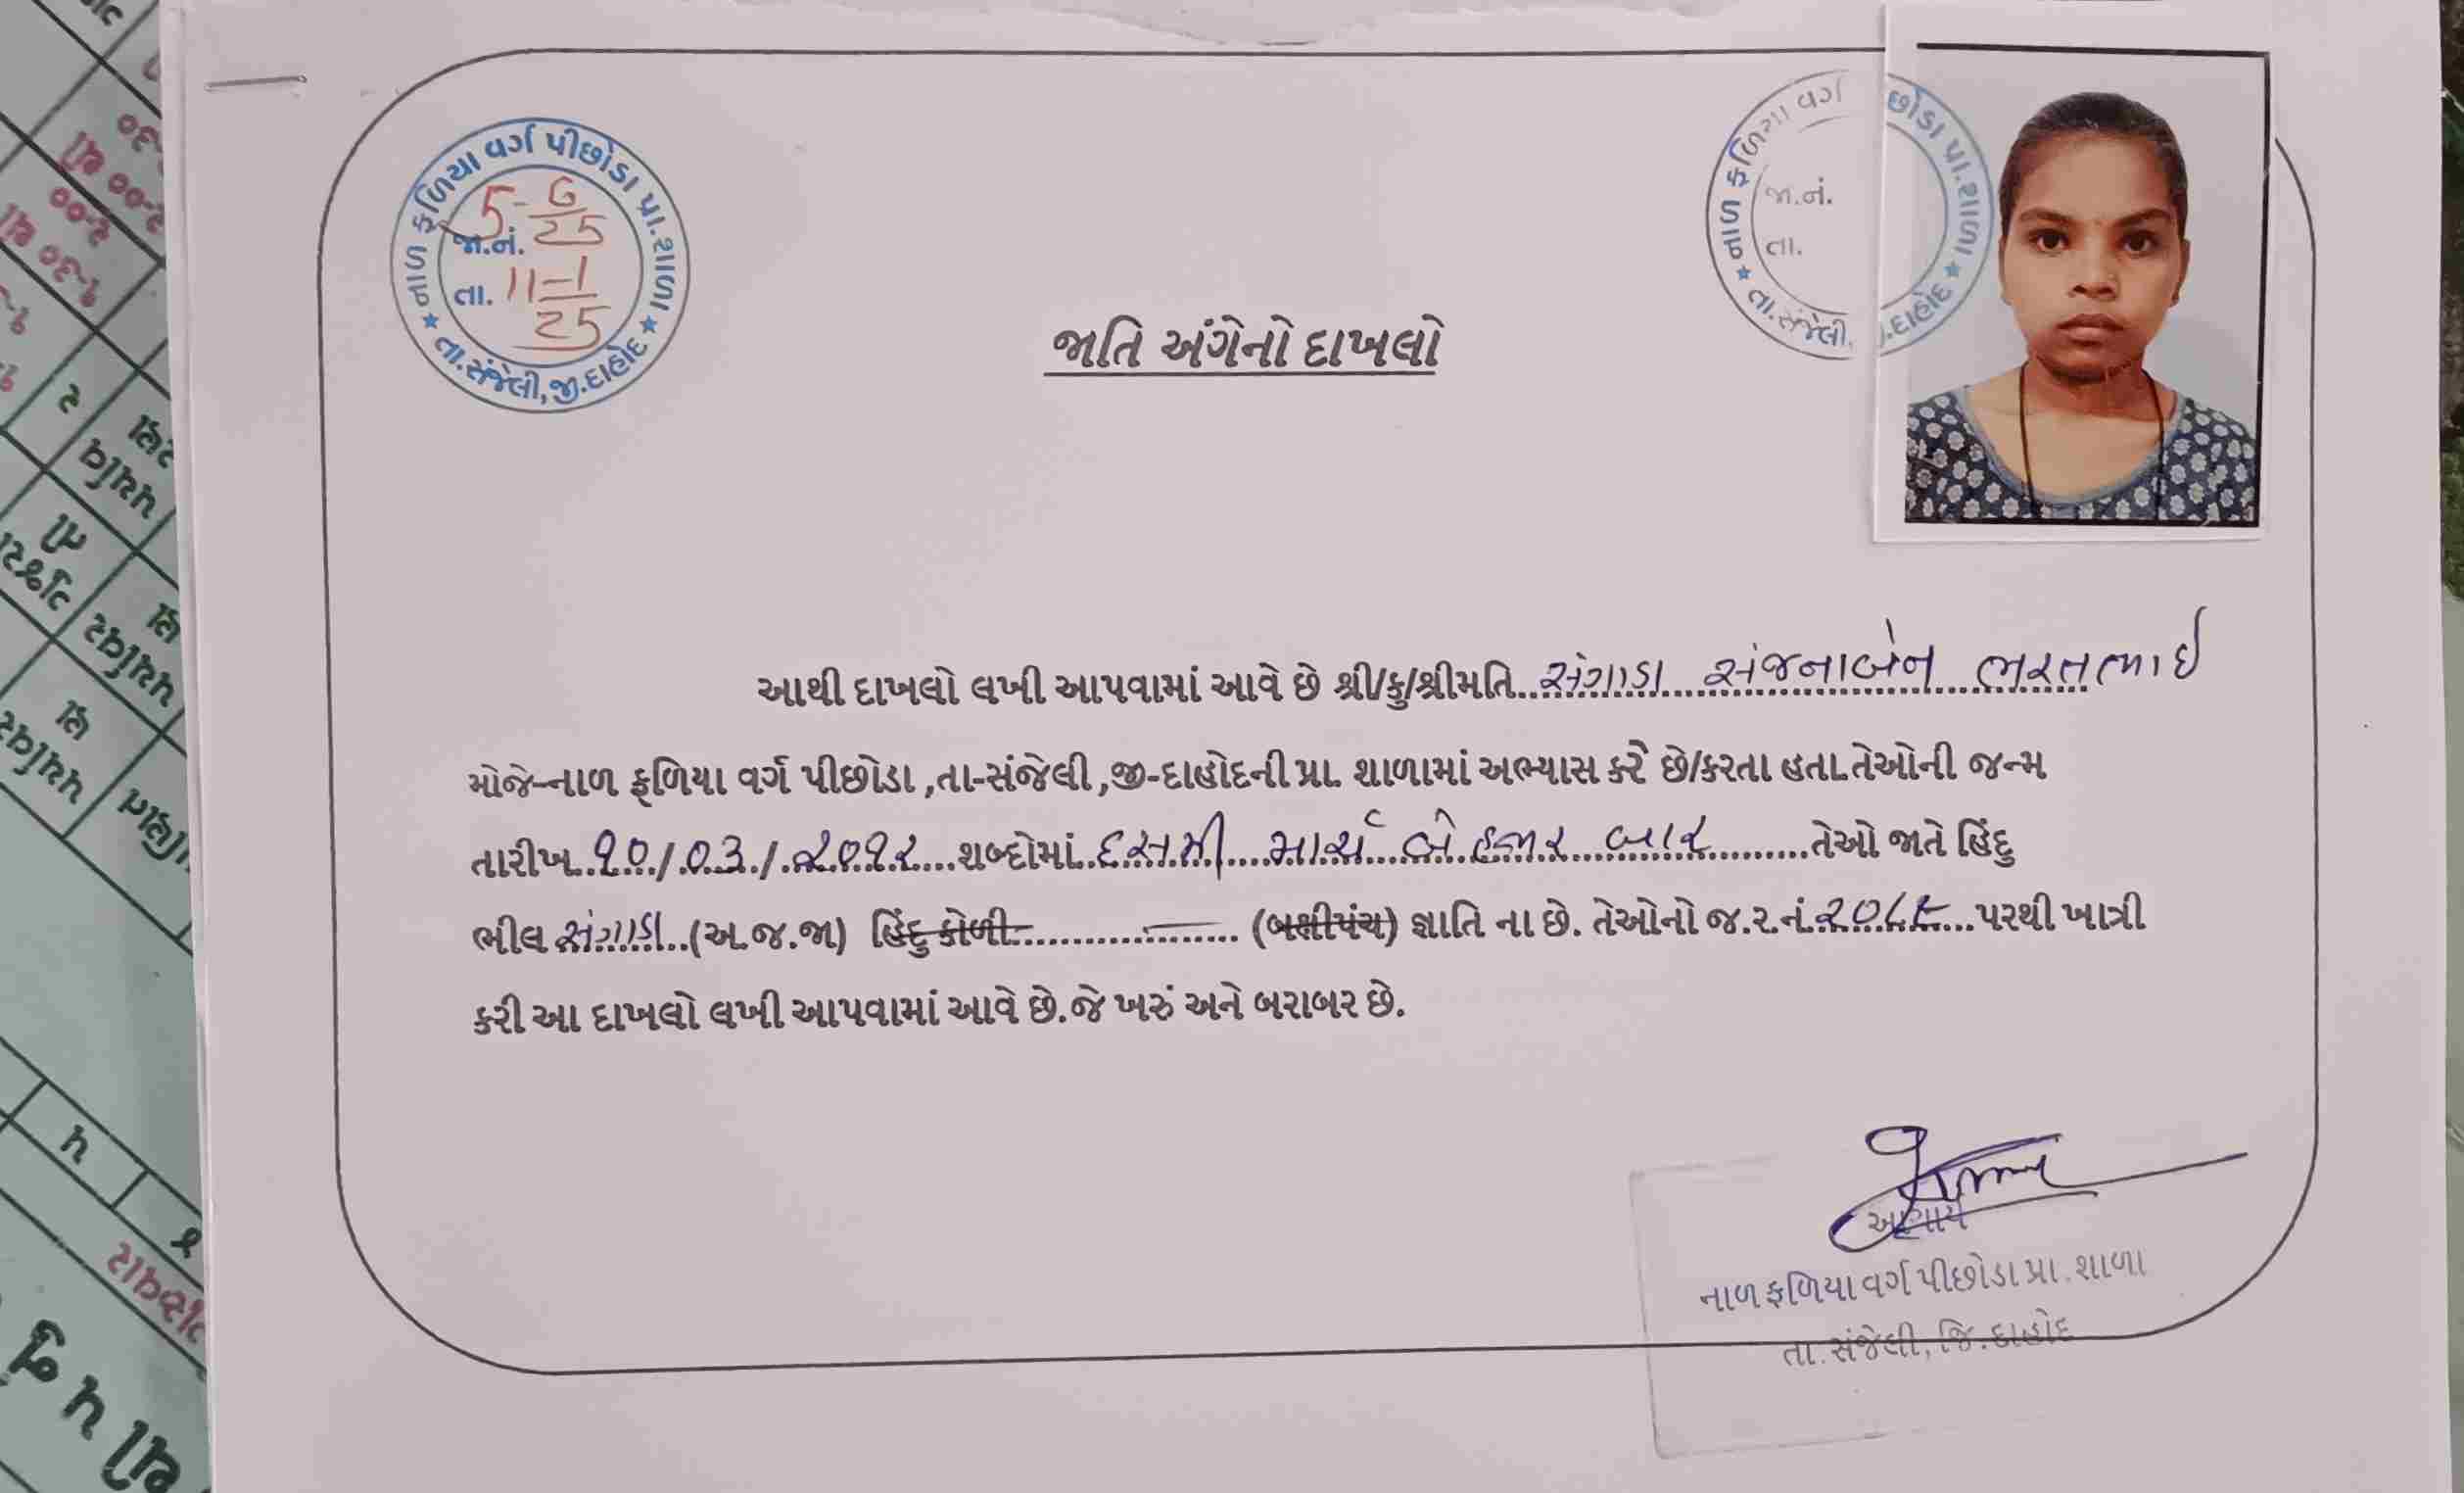 નાળ ફળિયા વર્ગ પીછોડા પ્રા.શાળા
જા.નં. 5-6/25
તા. 11-1/25
★ તા.સંજેલી,જી.દાહોદ ★
નાળ ફળિયા વર્ગ છોડા પ્રા.શાળા
જા.નં.
તા.
★ તા.સંજેલી, જી.દાહોદ ★
જાતિ અંગેનો દાખલો
આથી દાખલો લખી આપવામાં આવે છે શ્રી/કુ/શ્રીમતિ..સંગાડા સંજનાબેન ભરતભાઇ
મોજે-નાળ ફળિયા વર્ગ પીછોડા ,તા-સંજેલી ,જી-દાહોદની પ્રા. શાળામાં અભ્યાસ કરે છે/કરતા હતા.તેઓની જન્મ
તારીખ..૧૦/.૦૩./.૨૦૧૨....શબ્દોમાં..દસમી....માર્ચ....બે હજાર...બાર..........તેઓ જાતે હિંદુ
ભીલ સંગાડા..(અ.જ.જા) હિંદુ કોળી.................... (બક્ષીપંચ) જ્ઞાતિ ના છે. તેઓનો જ.ર.નં.૨૦૮૯...પરથી ખાત્રી
કરી આ દાખલો લખી આપવામાં આવે છે.જે ખરું અને બરાબર છે.
આચાર્ય
નાળ ફળિયા વર્ગ પીછોડા પ્રા. શાળા
તા. સંજેલી, જિ. દાહોદ